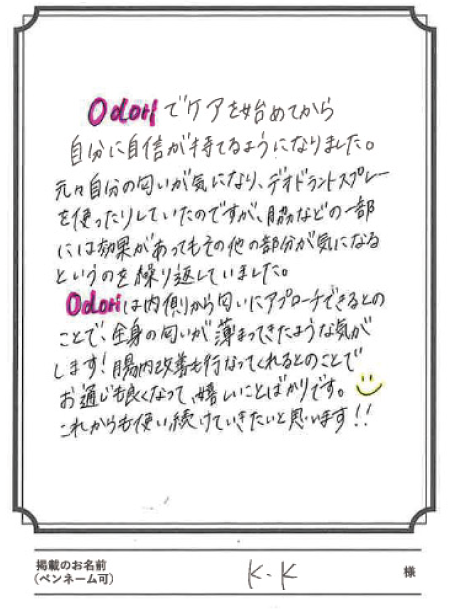 Odoriでケアを始めてから
自分に自信が持てるようになりました。
元々自分の匂いが気になり、デオドラントスプレー
を使ったりしていたのですが、脇などの一部
には効果があってもその他の部分が気になる
というのを繰り返していました。
Odoriは内側から匂いにアプローチできるとの
ことで、全身の匂いが薄まってきたような気が
します！腸内改善も行なってくれるとのことで
お通じも良くなって、嬉しいことばかりです。
これからも使い続けていきたいと思います！！
掲載のお名前
(ペンネーム可)
K.K 様